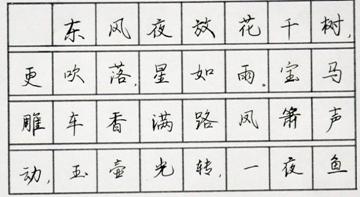 东风夜放花千树,
更吹落,星如雨.宝马
雕车香满路凤箫声
动,玉壶光转,一夜鱼